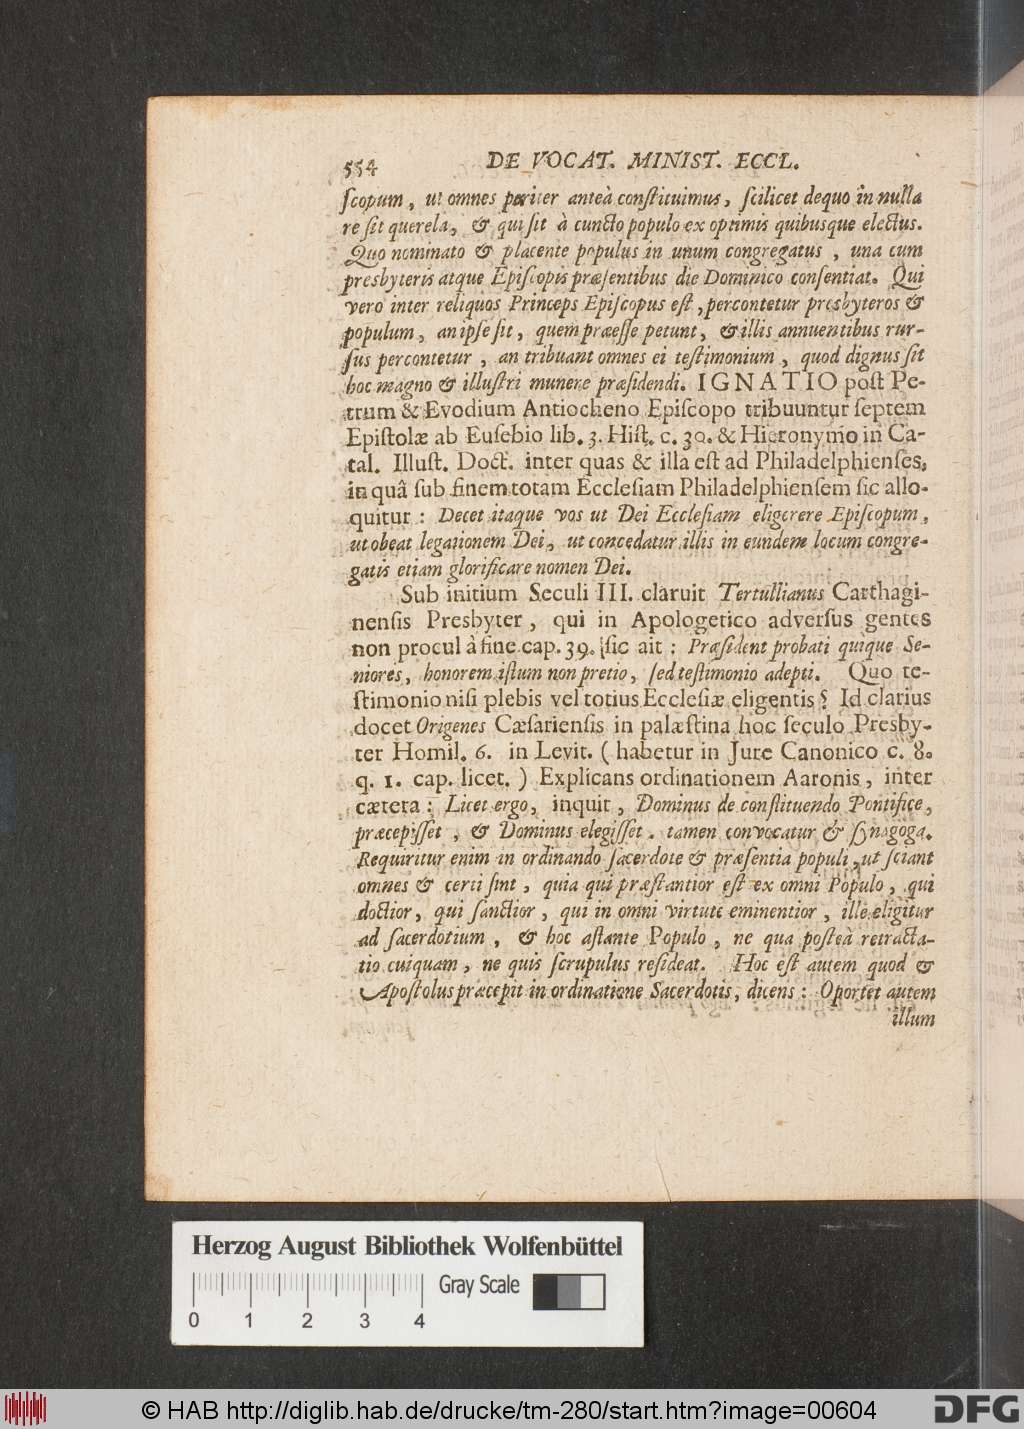 554 DE VOCAT. MINIST. ECCL.
ſcopum, ut omnes pariter anteà conſtituimus, ſcilicet dequo in nulla
re ſit querela, & qui ſit à cuncto populo ex optimis quibusque electus.
Quo nominato & placente populus in unum congregatus, una cum
presbyteris atque Epiſcopis præſentibus die Dominico conſentiat. Qui
vero inter reliquos Princeps Epiſcopus eſt, percontetur presbyteros &
populum, an ipſe ſit, quem præeſſe petunt, & illis annuentibus rur-
ſus percontetur, an tribuant omnes ei teſtimonium, quod dignus ſit
hoc magno & illuſtri munere præſidendi. IGNATIO poſt Pe-
trum & Evodium Antiocheno Epiſcopo tribuuntur ſeptem
Epiſtolæ ab Euſebio lib. 3. Hiſt. c. 30. & Hieronymo in Ca-
tal. Illuſt. Doct. inter quas & illa eſt ad Philadelphienſes,
in quâ ſub finem totam Eccleſiam Philadelphienſem ſic allo-
quitur: Decet itaque vos ut Dei Eccleſiam eligerere Epiſcopum,
ut obeat legationem Dei, ut concedatur illis in eundem locum congre-
gatis etiam glorificare nomen Dei.
Sub initium Seculi III. claruit Tertullianus Carthagi-
nenſis Presbyter, qui in Apologetico adverſus gentes
non procul à fine cap. 39. ſic ait: Præſident probati quique Se-
niores, honorem iſtum non pretio, ſed teſtimonio adepti. Quo te-
ſtimonio niſi plebis vel totius Eccleſiæ eligentis? Id clarius
docet Origenes Cæſarienſis in palæſtina hoc ſeculo Presby-
ter Homil. 6. in Levit. (habetur in Jure Canonico c. 8.
q. 1. cap. licet.) Explicans ordinationem Aaronis, inter
cætera: Licet ergo, inquit, Dominus de conſtituendo Pontifice,
præcepiſſet, & Dominus elegiſſet. tamen convocatur & ſynagoga.
Requiritur enim in ordinando ſacerdote & præſentia populi, ut ſciant
omnes & certi ſint, quia qui præſtantior eſt ex omni Populo, qui
doctior, qui ſanctior, qui in omni virtute eminentior, ille eligitur
ad ſacerdotium, & hoc aſtante Populo, ne qua poſteà retracta-
tio cuiquam, ne quis ſcrupulus reſideat. Hoc eſt autem quod &
Apoſtolus præcepit in ordinatione Sacerdotis, dicens: Oportet autem
illum
Herzog August Bibliothek Wolfenbüttel
Gray Scale
0 1 2 3 4
© HAB http://diglib.hab.de/drucke/tm-280/start.htm?image=00604
DFG